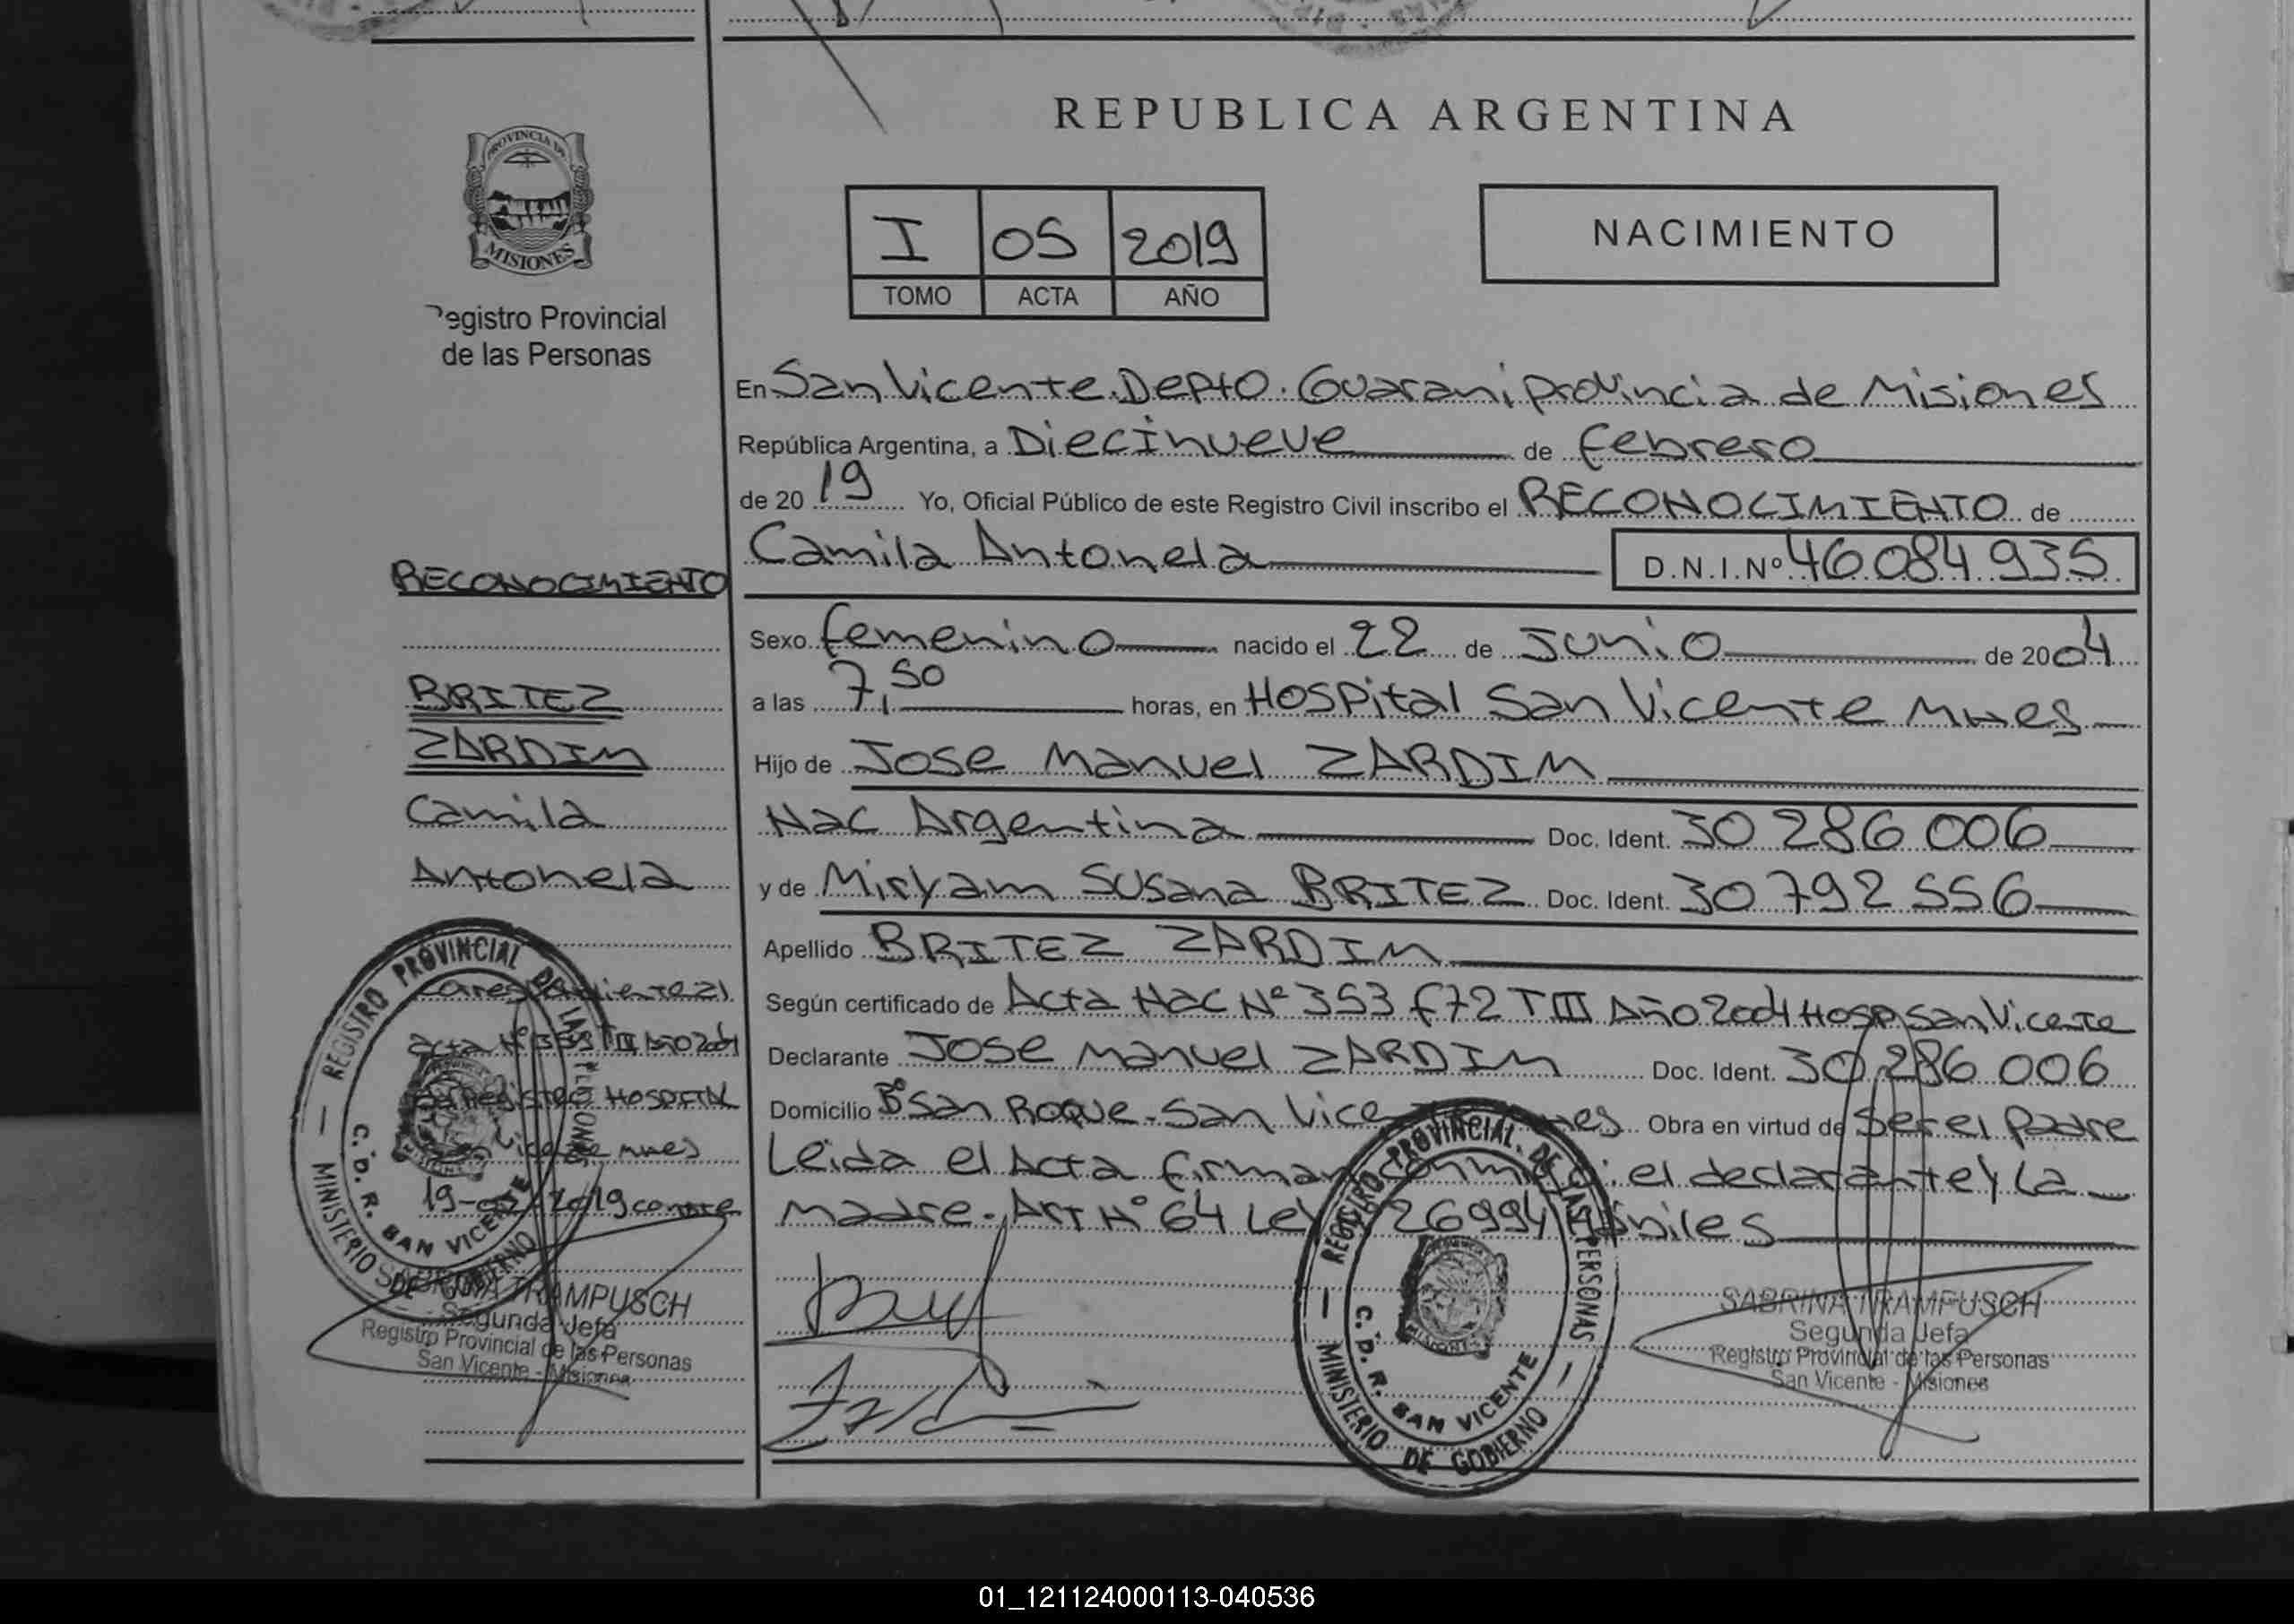 REPUBLICA ARGENTINA
PROVINCIA DE
MISIONES
egistro Provincial
de las Personas
I 05 2019
TOMO ACTA AÑO
NACIMIENTO
En San Vicente. Depto. Guarani provincia de Misiones
República Argentina, a Diecinueve de febrero
de 20 19 Yo, Oficial Público de este Registro Civil inscribo el RECONOCIMIENTO de
Camila Antonela D.N.I.Nº 46.084.935
Sexo femenino nacido el 22 de Junio de 2004
a las 7,50 horas, en Hospital San Vicente Mnes
Hijo de Jose Manuel ZARDIM
Nac Argentina Doc. Ident. 30 286 006
y de Miryam Susana BRITEZ Doc. Ident. 30 792 556
Apellido BRITEZ ZARDIM
Según certificado de Acta Nac Nº 353 f72 T III Año 2004 Hosp San Vicente
Declarante Jose Manuel ZARDIM Doc. Ident. 30.286 006
Domicilio Bº San Roque - San Vice nes Obra en virtud de Ser el Padre
Leida el Acta firman conmigo: el declarante y La
madre. Art Nº 64 Ley 26994
RECONOCIMIENTO
BRITEZ
ZARDIM
Camila
Antonela
acta Nº 353 T III Año 2004
Registro HOSPITAL
Vicente Mnes
19- 2019 conste
REGISTRO PROVINCIAL DE LAS PERSONAS
C. D. R. SAN VICENTE
MINISTERIO DE GOBIERNO
SABRINA TRAMPUSCH
Segunda Jefa
Registro Provincial de las Personas
San Vicente - Misiones
REGISTRO PROVINCIAL DE LAS PERSONAS
C. D. R. SAN VICENTE
MINISTERIO DE GOBIERNO
SABRINA TRAMPUSCH
Segunda Jefa
Registro Provincial de las Personas
San Vicente - Misiones
01_121124000113-040536